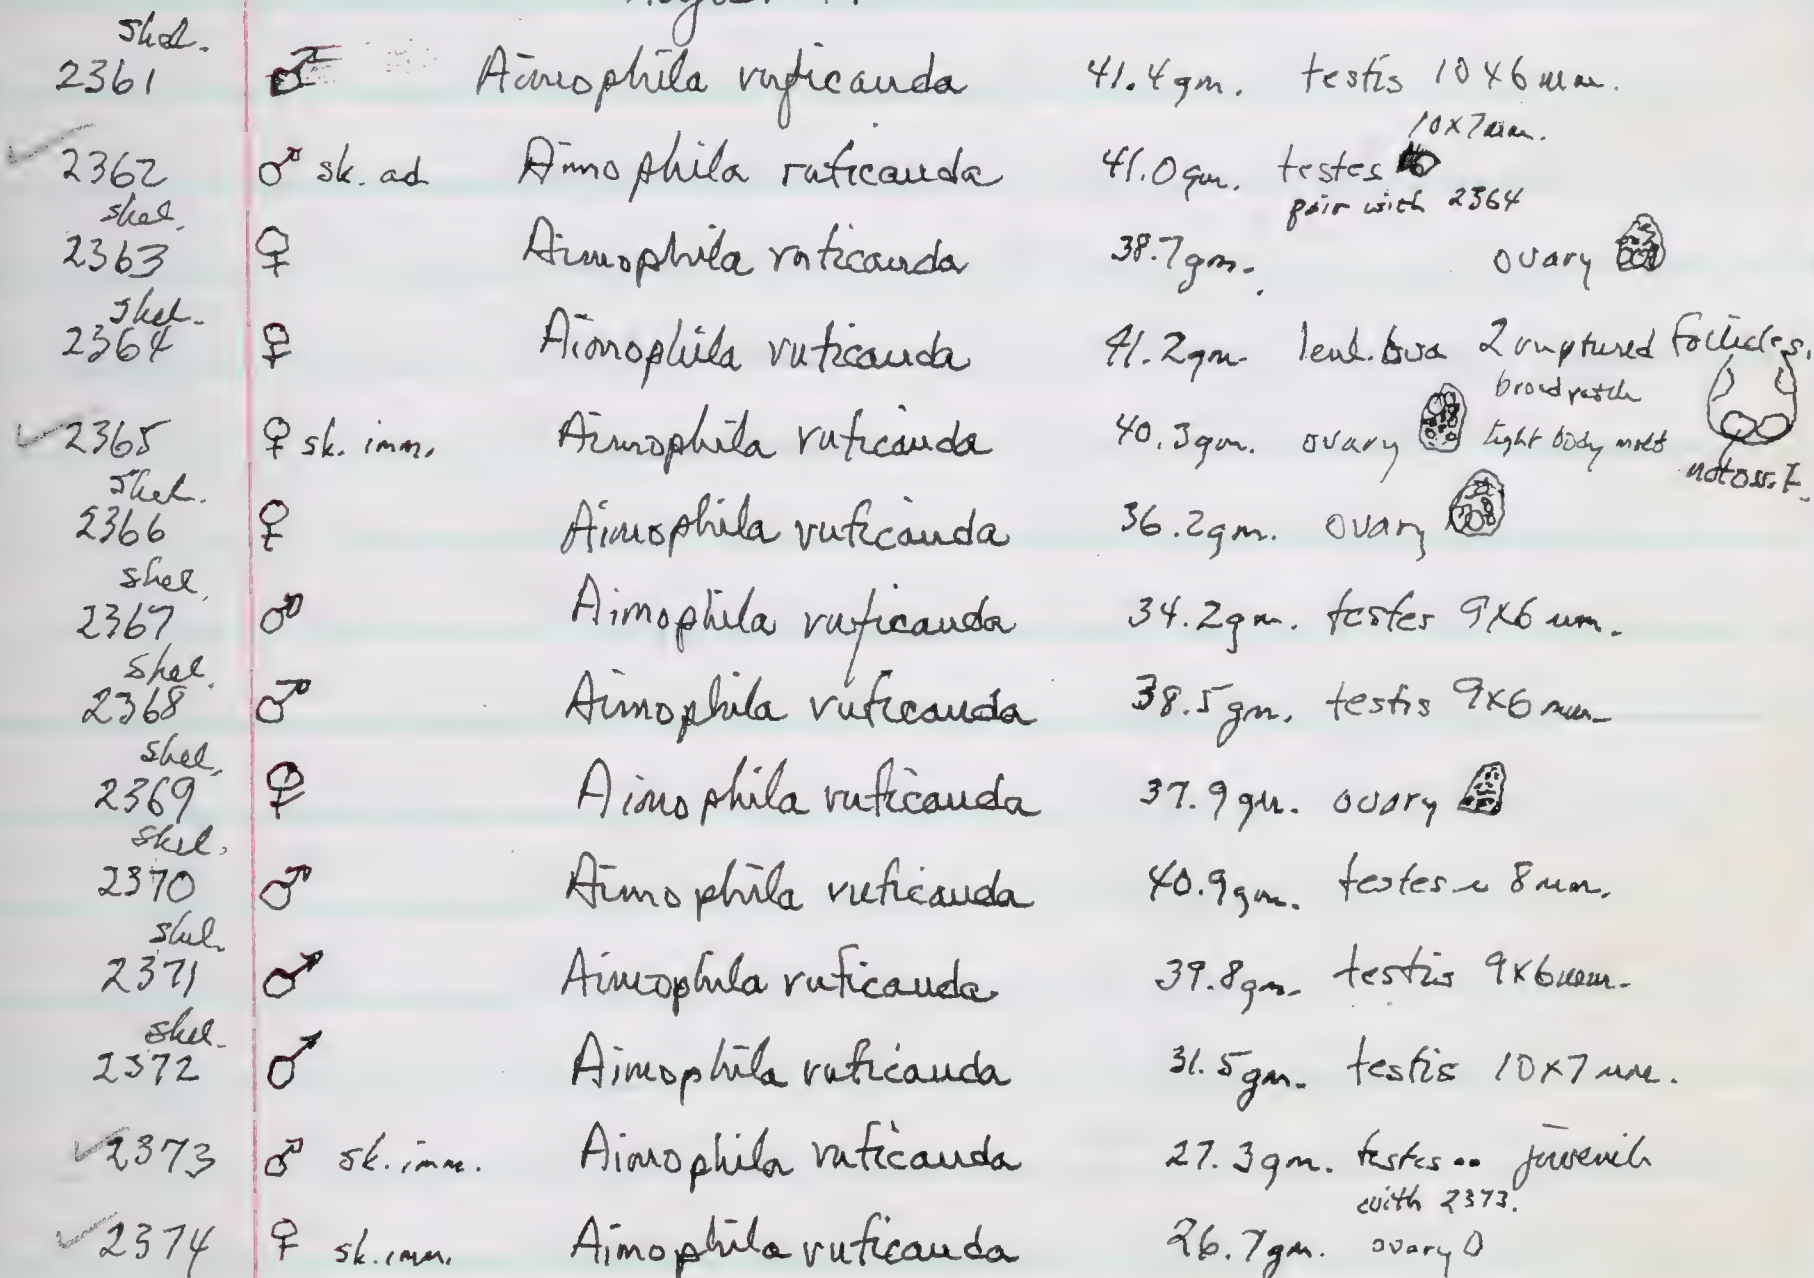 August
skel.
2361 ♂ Aimophila ruficauda 41.4 gm. testis 10x6 mm.
10x7 mm.
2362 ♂ sk. ad Aimophila ruficauda 41.0 gm. testes
pair with 2364
skel.
2363 ♀ Aimophila ruficauda 38.7 gm. ovary
skel.
2364 ♀ Aimophila ruficauda 41.2 gm. ova 2 ruptured follicles.
brood patch
2365 ♀ sk. imm. Aimophila ruficauda 40.3 gm. ovary light body molt
not oss.
skel.
2366 ♀ Aimophila ruficauda 36.2 gm. ovary
skel.
2367 ♂ Aimophila ruficauda 34.2 gm. testes 9x6 mm.
skel.
2368 ♂ Aimophila ruficauda 38.5 gm. testis 9x6 mm
skel.
2369 ♀ Aimophila ruficauda 37.9 gm. ovary
skel.
2370 ♂ Aimophila ruficauda 40.9 gm. testes ~ 8 mm.
skel.
2371 ♂ Aimophila ruficauda 39.8 gm. testis 9x6 mm.
skel.
2372 ♂ Aimophila ruficauda 31.5 gm. testis 10x7 mm.
2373 ♂ sk. imm. Aimophila ruficauda 27.3 gm. testes juvenile
with 2373.
2374 ♀ sk. imm. Aimophila ruficauda 26.7 gm. ovary